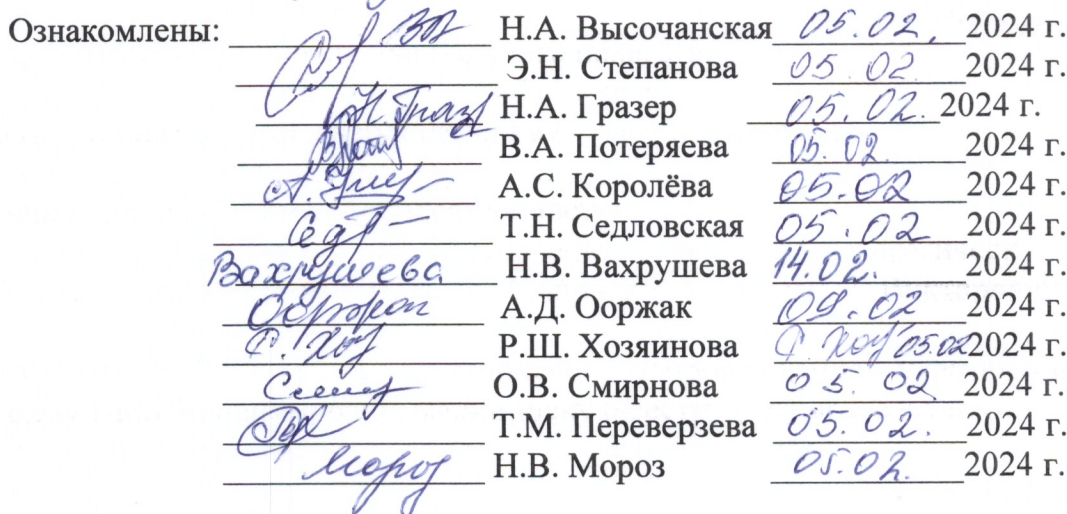 Ознакомлены: Н.А. Высочанская 05.02. 2024 г.
Э.Н. Степанова 05 02 2024 г.
Н. Граз Н.А. Гразер 05.02. 2024 г.
В.А. Потеряева 05. 02. 2024 г.
А.С. Королёва 05.02 2024 г.
Сед Т.Н. Седловская 05.02 2024 г.
Вахрушева Н.В. Вахрушева 14.02. 2024 г.
Ооржак А.Д. Ооржак 09.02 2024 г.
Р. Хоз Р.Ш. Хозяинова Р. Хоз 05.02 2024 г.
О.В. Смирнова 05.02 2024 г.
Т.М. Переверзева 05.02. 2024 г.
Мороз Н.В. Мороз 05.02. 2024 г.